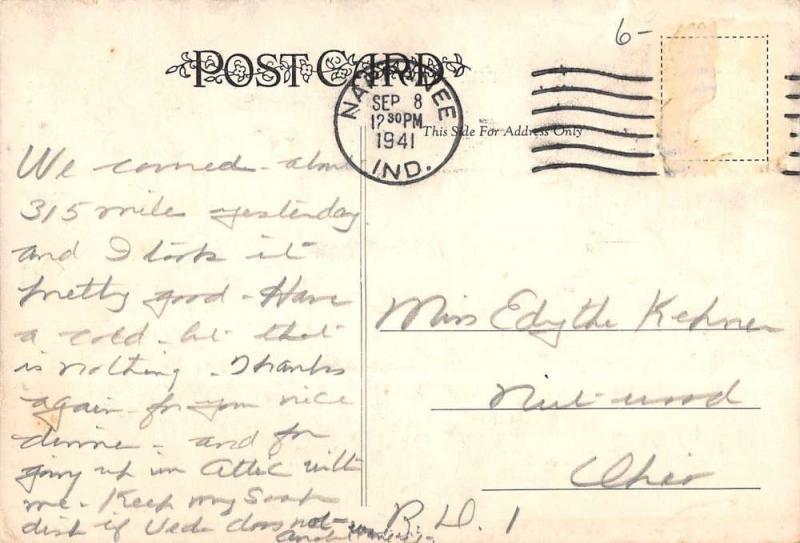 6-
POST CARD
NAPPANEE
SEP 8
12 30 PM
1941
IND.
This Side For Address Only
We comed about
315 miles yesterday
and I took it
pretty good - Have
a cold - but that
is nothing - Thanks
again for your nice
dinner - and for
going up in attic with
me. Keep my Soap
dish if Veda does not
Miss Edythe Kepner
Nut-wood
Ohio
R.D. 1